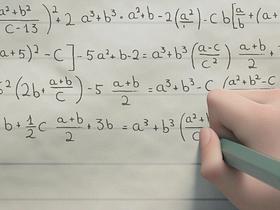 a²+b² / C-13 )² + 2 a³+b³ · a²+b - 2( a² / ) - C b[ a / b + (a+
a+5)² - C ] - 5 a²+b - 2 = a³+b³ ( a-c / c² ) a²+b
² (2b + a+b / C ) - 5 a+b / 2 = a³+b³ - C (a²+b²-
b + 1/2 C a+b / 2 + 3b = a³+b³ ( a²+ / C